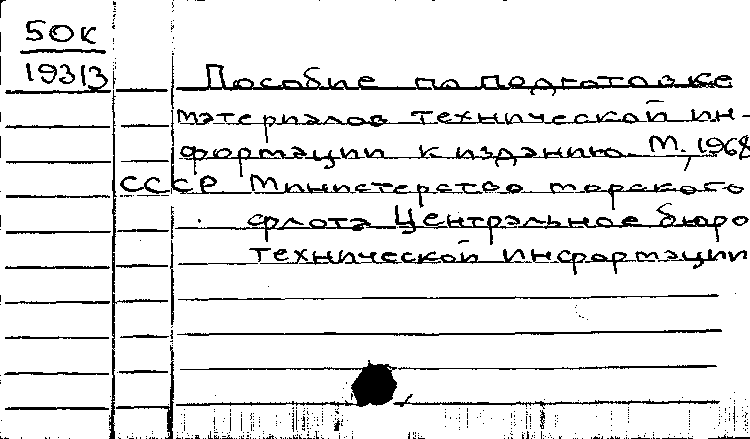 50к
19313
Пособие по подготовке
материалов технической ин-
формации к изданию. М., 1968
СССР Министерство морского
флота Центральное бюро
технической информации